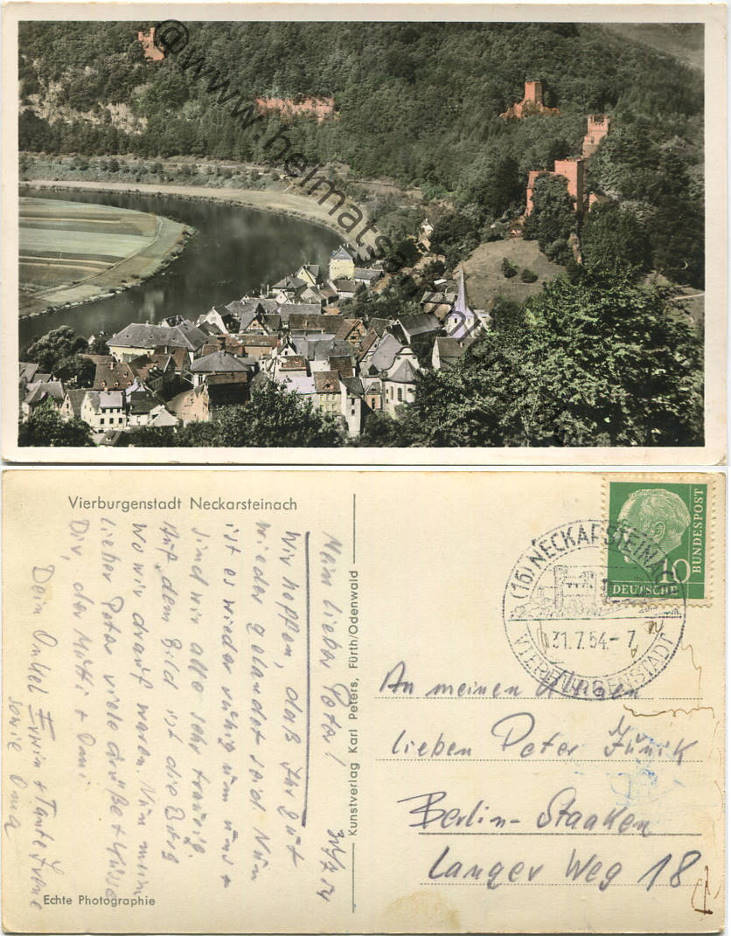 @www.heimatsammlung.de
Vierburgenstadt Neckarsteinach
30/7.54
Mein lieber Peter!
Wir hoffen, daß Ihr gut
wieder gelandet seid. Nun
ist es wieder ruhig um uns +
sind wir alle sehr traurig.
Auf dem Bild ist die Burg
wo wir drauf waren. Nun mein
lieber Peter viele Grüße + Küsse
Dir, der Mutti + Omi
Dein Onkel Erwin + Tante Irene
sowie Oma
Echte Photographie
Kunstverlag Karl Peters, Fürth/Odenwald
DEUTSCHE
BUNDESPOST
10
(16) NECKARSTEINACH
31.7.54.-7
VIERBURGENSTADT
An meinen
lieben Peter
Berlin-Staaken
Langer Weg 18